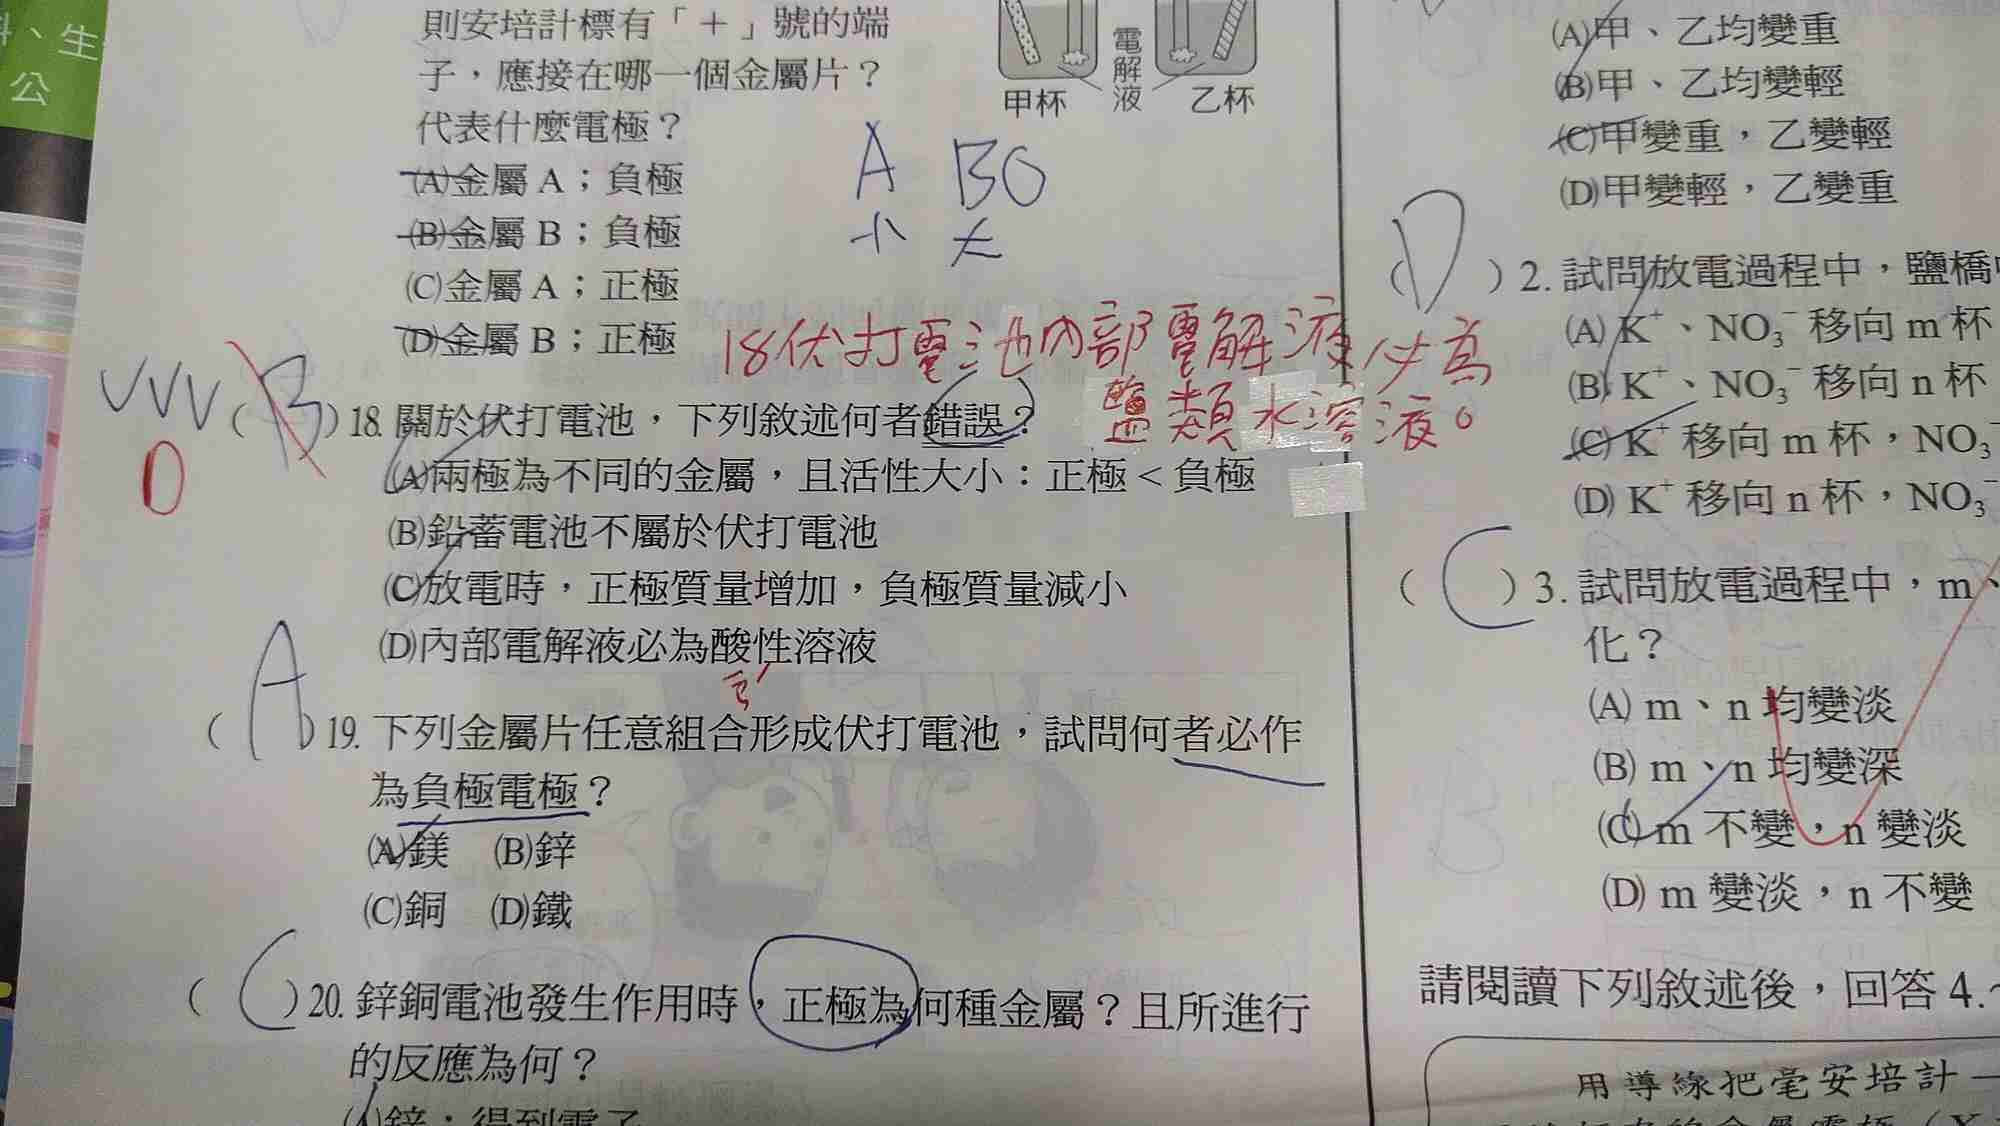 科、生
公
則安培計標有「＋」號的端
子，應接在哪一個金屬片？
代表什麼電極？
(A)金屬 A；負極
(B)金屬 B；負極
(C)金屬 A；正極
(D)金屬 B；正極
甲杯
電解液
乙杯
A BO
小 大
18伏打電池內部電解液必為
鹽類水溶液。
VVV
D
( B )18. 關於伏打電池，下列敘述何者錯誤？
(A)兩極為不同的金屬，且活性大小：正極 < 負極
(B)鉛蓄電池不屬於伏打電池
(C)放電時，正極質量增加，負極質量減小
(D)內部電解液必為酸性溶液
( A )19. 下列金屬片任意組合形成伏打電池，試問何者必作
為負極電極？
(A)鎂 (B)鋅
(C)銅 (D)鐵
( C )20. 鋅銅電池發生作用時，正極為何種金屬？且所進行
的反應為何？
(A)鋅；得到電子
(A)甲、乙均變重
(B)甲、乙均變輕
(C)甲變重，乙變輕
(D)甲變輕，乙變重
( D )2. 試問放電過程中，鹽橋中
(A) K⁺、NO₃⁻ 移向 m 杯
(B) K⁺、NO₃⁻ 移向 n 杯
(C) K⁺ 移向 m 杯，NO₃⁻
(D) K⁺ 移向 n 杯，NO₃⁻
( C )3. 試問放電過程中，m、
化？
(A) m、n 均變淡
(B) m、n 均變深
(C) m 不變，n 變淡
(D) m 變淡，n 不變
請閱讀下列敘述後，回答 4.~
用導線把毫安培計一